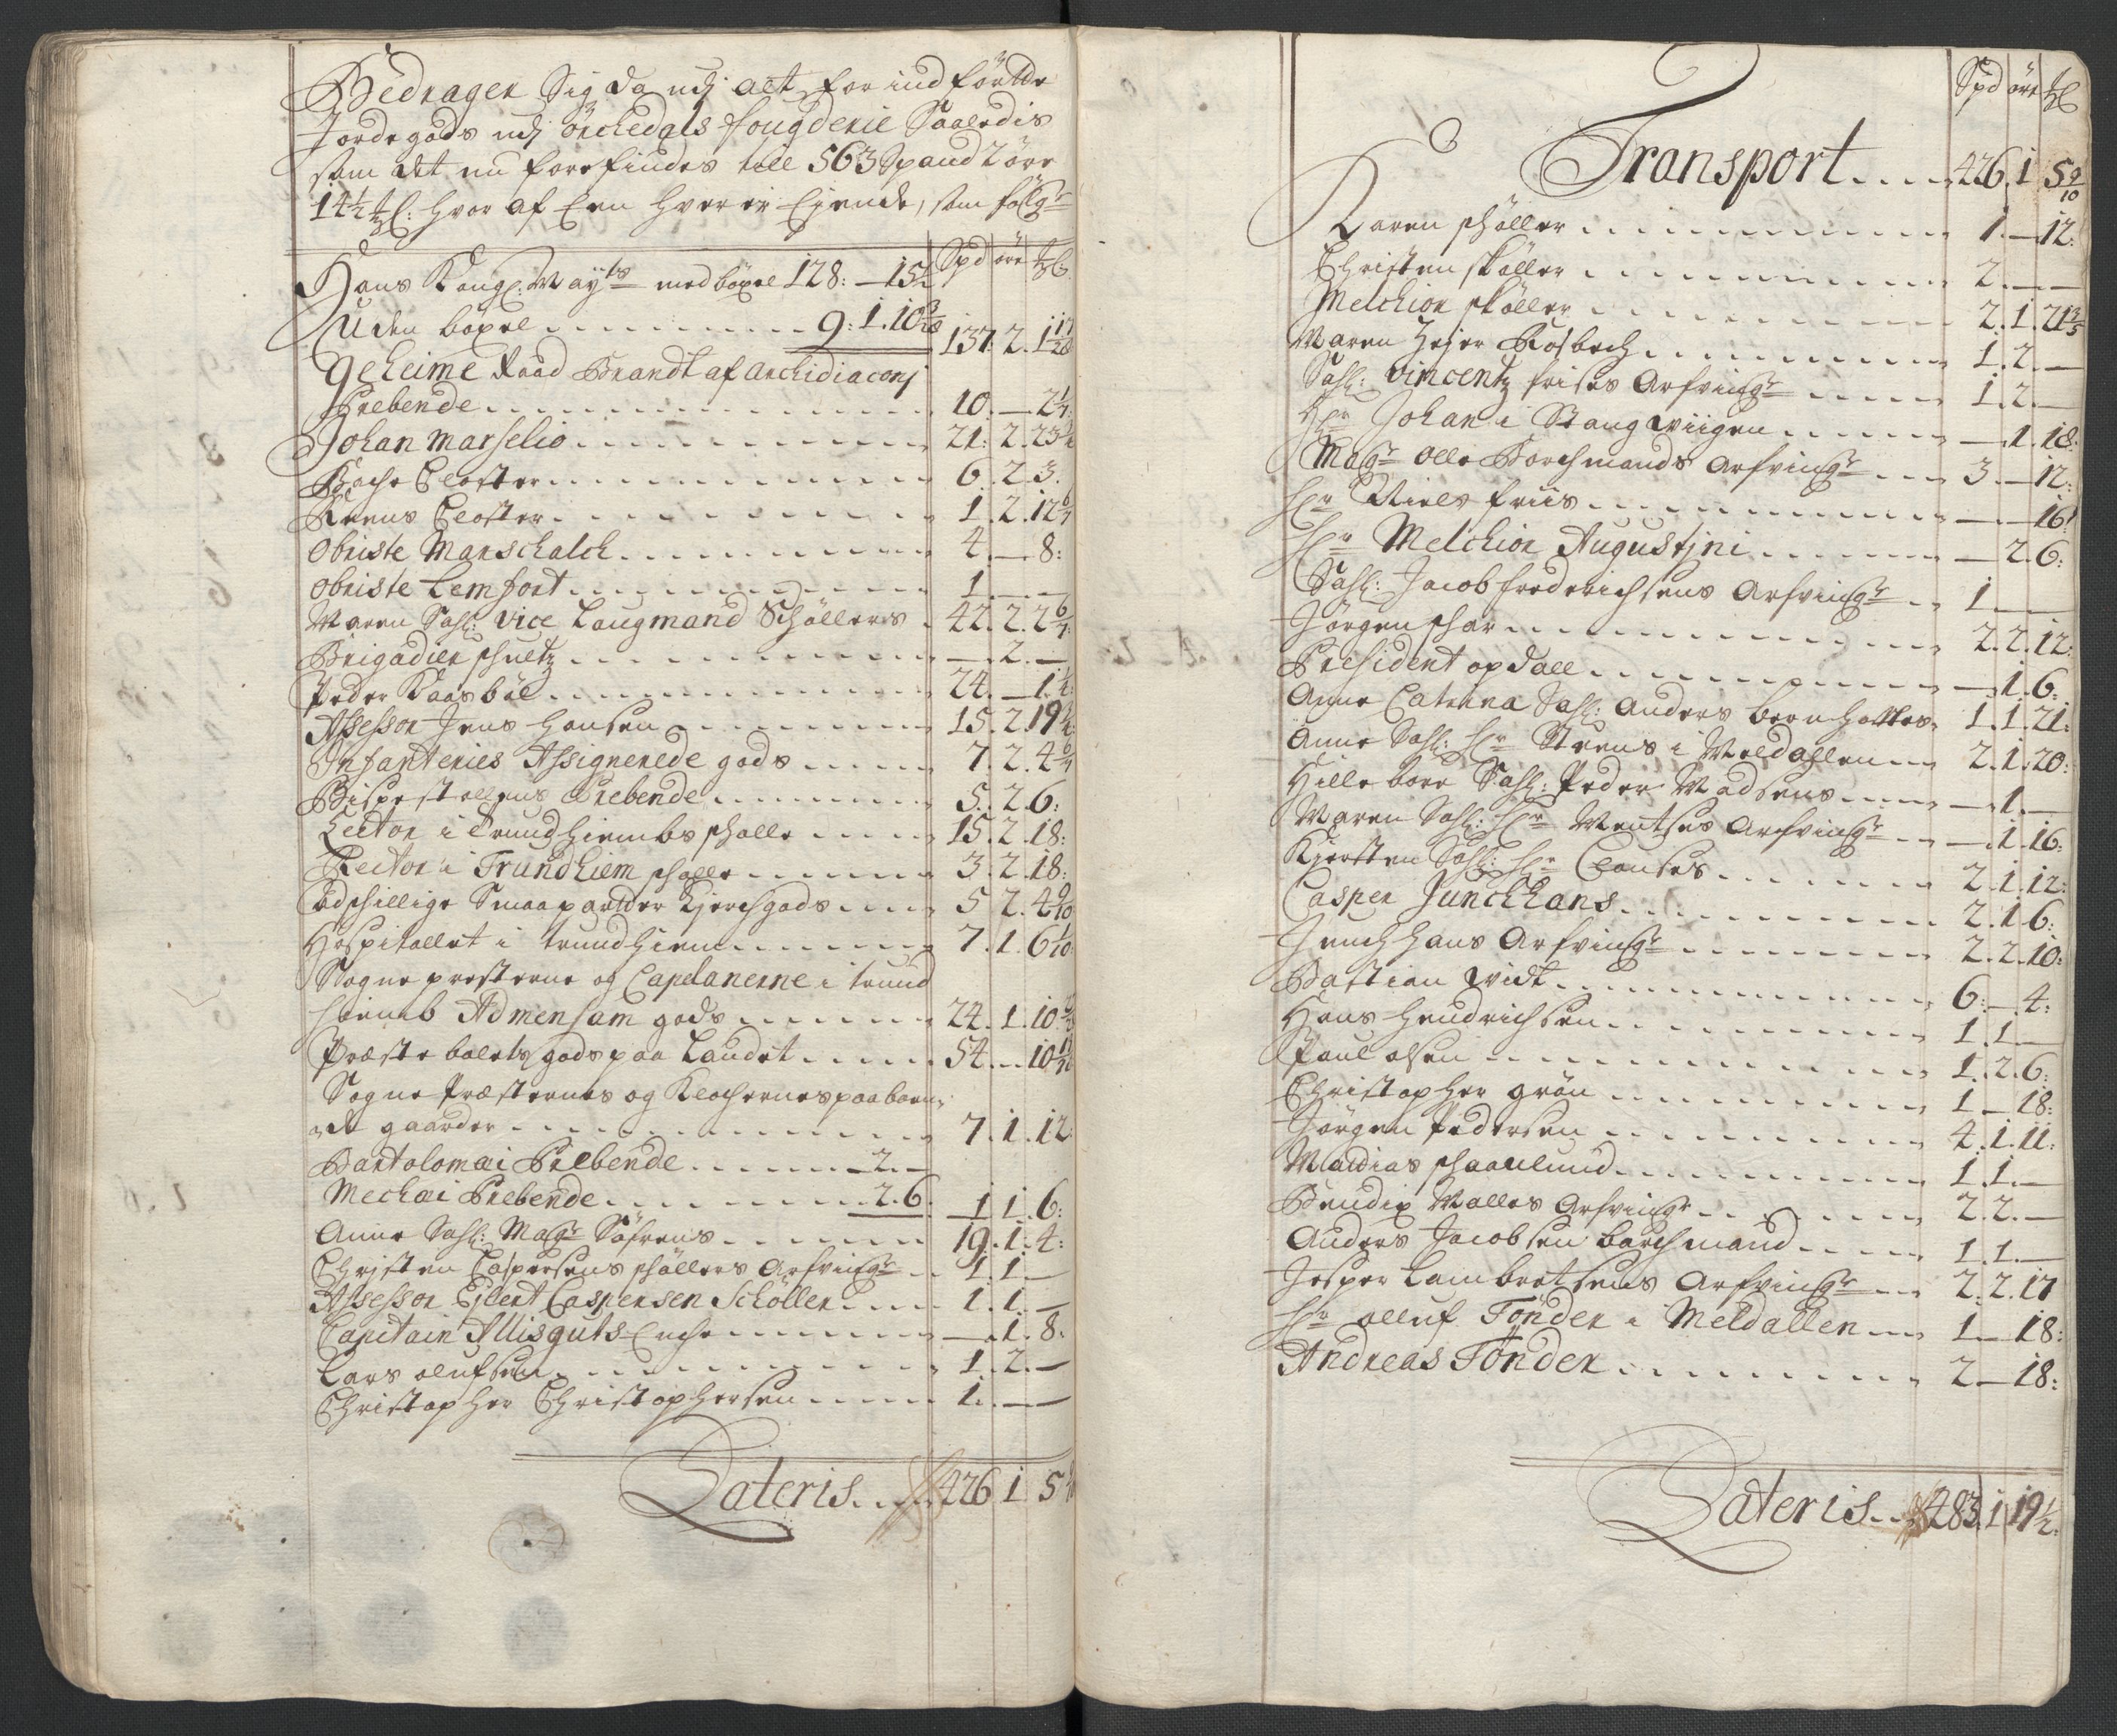 Bedrager Sig da udj alt for indførtte
Jordegods udj örchedals fougderie Saaledis
som det nu forefindes till 563 Spand 2 öre
14 1/2 ℔: hvor af Een hver er Eyende, som følgr
Spd öre ℔
Hans Kongl: Mayts med böxel 128: — 15
Uden böxel 9: 1. 10 137. 2. 1
Geheime Raad Brandt af Archidiaconj
Prebende 10. — 2 1/7
Johan Marselio 21: 2. 23
Bache Closter 6. 2. 3.
Reens Closter 1. 2. 12 6/7
Obriste Marschalch 4. — 8:
Obriste Lemfort 1 — —
Maren Sahl: vice Laugmand Schöllers 42. 2. 2 6/7
Brigadier schultz — 2. —
Peder Kaasböl 24. — 1 1/4
Assessor Jens Hansen 15. 2. 19
Infanteries Assignerede gods 7. 2. 4 6/7
Bispestollens Prebende 5. 2. 6:
Lector i Trundhiembs scholle 15. 2. 18:
Rector i Trundhiem scholle 3. 2. 18:
Adschillige Smaaparter Kjerchgods 5 2. 4 9/10
Hospitallet i trundhiem 7. 1. 6 1/10
Sogne presterne og Capelanerne i trund
hiemb Ad mensam gods 24. 1. 10
Præstebolets gods paa Landet 54. — 10
Sogne Præsternes og Klocherne paaboen
de gaarder 7. 1. 12
Bartolomæi Prebende 2. —
Mechæi Prebende 2. 6. 1 1. 6:
Anne Sahl: Magr Söfrens 19. 1. 4:
Christen Caspersens schöllers Arfvingr 1. 1. —
Assessor Ejlert Caspersen Schöller 1. 1. —
Capitain Allisguts Enche — 1. 8:
Lars olufsen 1. 2. —
Christopher Christophersen 1. — —
Lateris 426 1 5
Spd öre ℔
Transport 426. 1 5 9/10
Karen schöller 1. — 12:
Christen sköller 2. — —
Melchior sköller 2. 1. 21 3/5
Maren Hejer Rosbech 1. 2. —
Sahl: Vincentz frises Arfvingr 1. 2. —
Hr Johan i Stangwiigen — 1. 18:
Magr Olle Borchmands Arfvingr 3. — 12:
Hr Niels friis — — 16
Hr Melchior Augustjni — 2. 6:
Sahl: Jacob frederichsens Arfvingr 1 — —
Jörgen schar 2. 2. 12:
President opdall — 1. 6:
Anne Catrina Sahl: Anders bernholtes 1. 1. 21:
Anne Sahl: Hr Steens i Meldahlen 2. 1. 20:
Hilleborr Sahl: Peder Madsens — 1. —
Maren Sahl: Hr Mentses Arfvingr — 1. 16:
Kjersten Sahl: Hr Clauses 2. 1. 12:
Casper Junchhans 2. 1. 6:
Junchhans Arfvingr 2. 2. 10:
Bastian Widt 6: — 4:
Hans Hendrichsen 1. 1 —
Paul olsen 1. 2. 6:
Christopher grön 1 — 18:
Jörgen Pedersen 4. 1. 11:
Madias schaarlund 1. 1. —
Bendix Malles Arfvingr 2. 2. —
Anders Jacobsen borchmand 1. 1. —
Jesper Lambretsens Arfvingr 2. 2. 17
Hr olluf Tönder i Meldallen 1 — 18:
Andreas Tönder 2 — 18:
Lateris 483. 1 19 1/2: